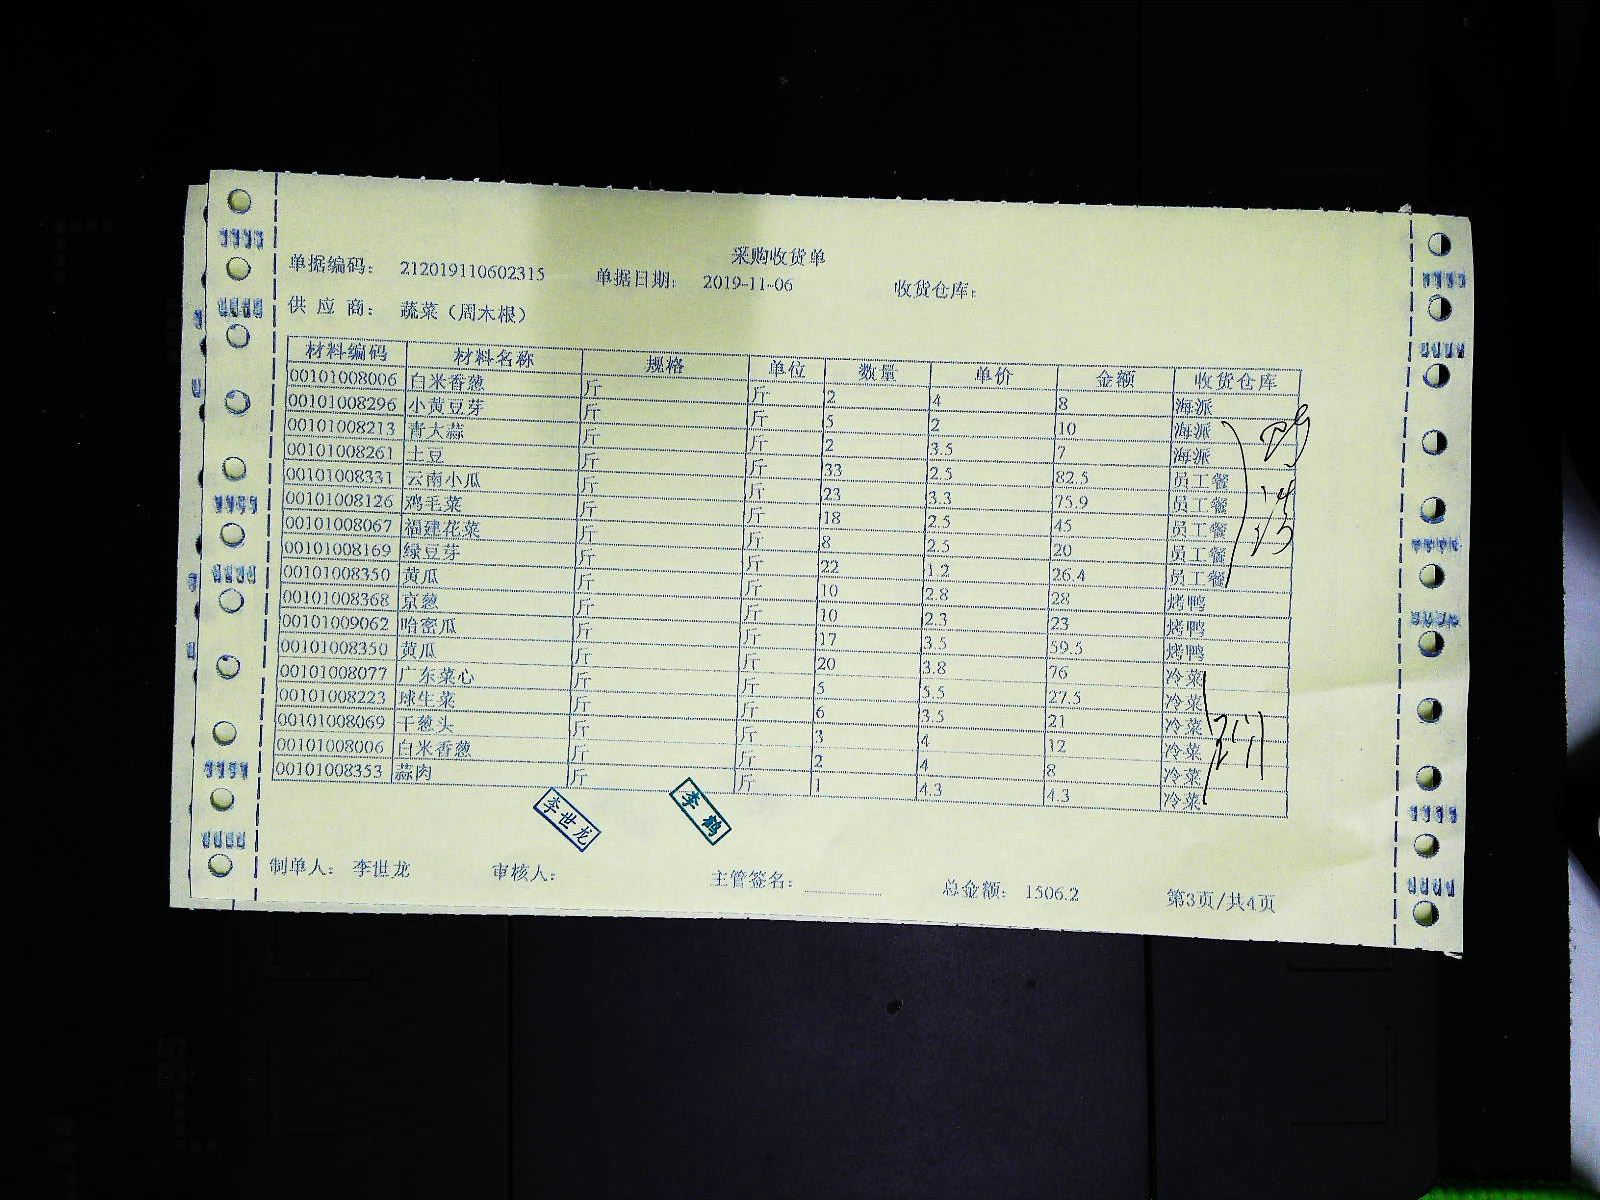 采购收货单
单据编码： 212019110602315 单据日期： 2019-11-06 收货仓库：
供 应 商： 蔬菜（周木根）
材料编码 材料名称 规格 单位 数量 单价 金额 收货仓库
00101008006 白米香葱 斤 斤 2 4 8 海派
00101008296 小黄豆芽 斤 斤 5 2 10 海派
00101008213 青大蒜 斤 斤 2 3.5 7 海派
00101008261 土豆 斤 斤 33 2.5 82.5 员工餐
00101008331 云南小瓜 斤 斤 23 3.3 75.9 员工餐
00101008126 鸡毛菜 斤 斤 18 2.5 45 员工餐
00101008067 福建花菜 斤 斤 8 2.5 20 员工餐
00101008169 绿豆芽 斤 斤 22 1.2 26.4 员工餐
00101008350 黄瓜 斤 斤 10 2.8 28 烤鸭
00101008368 京葱 斤 斤 10 2.3 23 烤鸭
00101009062 哈密瓜 斤 斤 17 3.5 59.5 烤鸭
00101008350 黄瓜 斤 斤 20 3.8 76 冷菜
00101008077 广东菜心 斤 斤 5 5.5 27.5 冷菜
00101008223 球生菜 斤 斤 6 3.5 21 冷菜
00101008069 干葱头 斤 斤 3 4 12 冷菜
00101008006 白米香葱 斤 斤 2 4 8 冷菜
00101008353 蒜肉 斤 斤 1 4.3 4.3 冷菜
李世龙 李鹤
制单人： 李世龙 审核人： 主管签名： 总金额： 1506.2 第3页/共4页